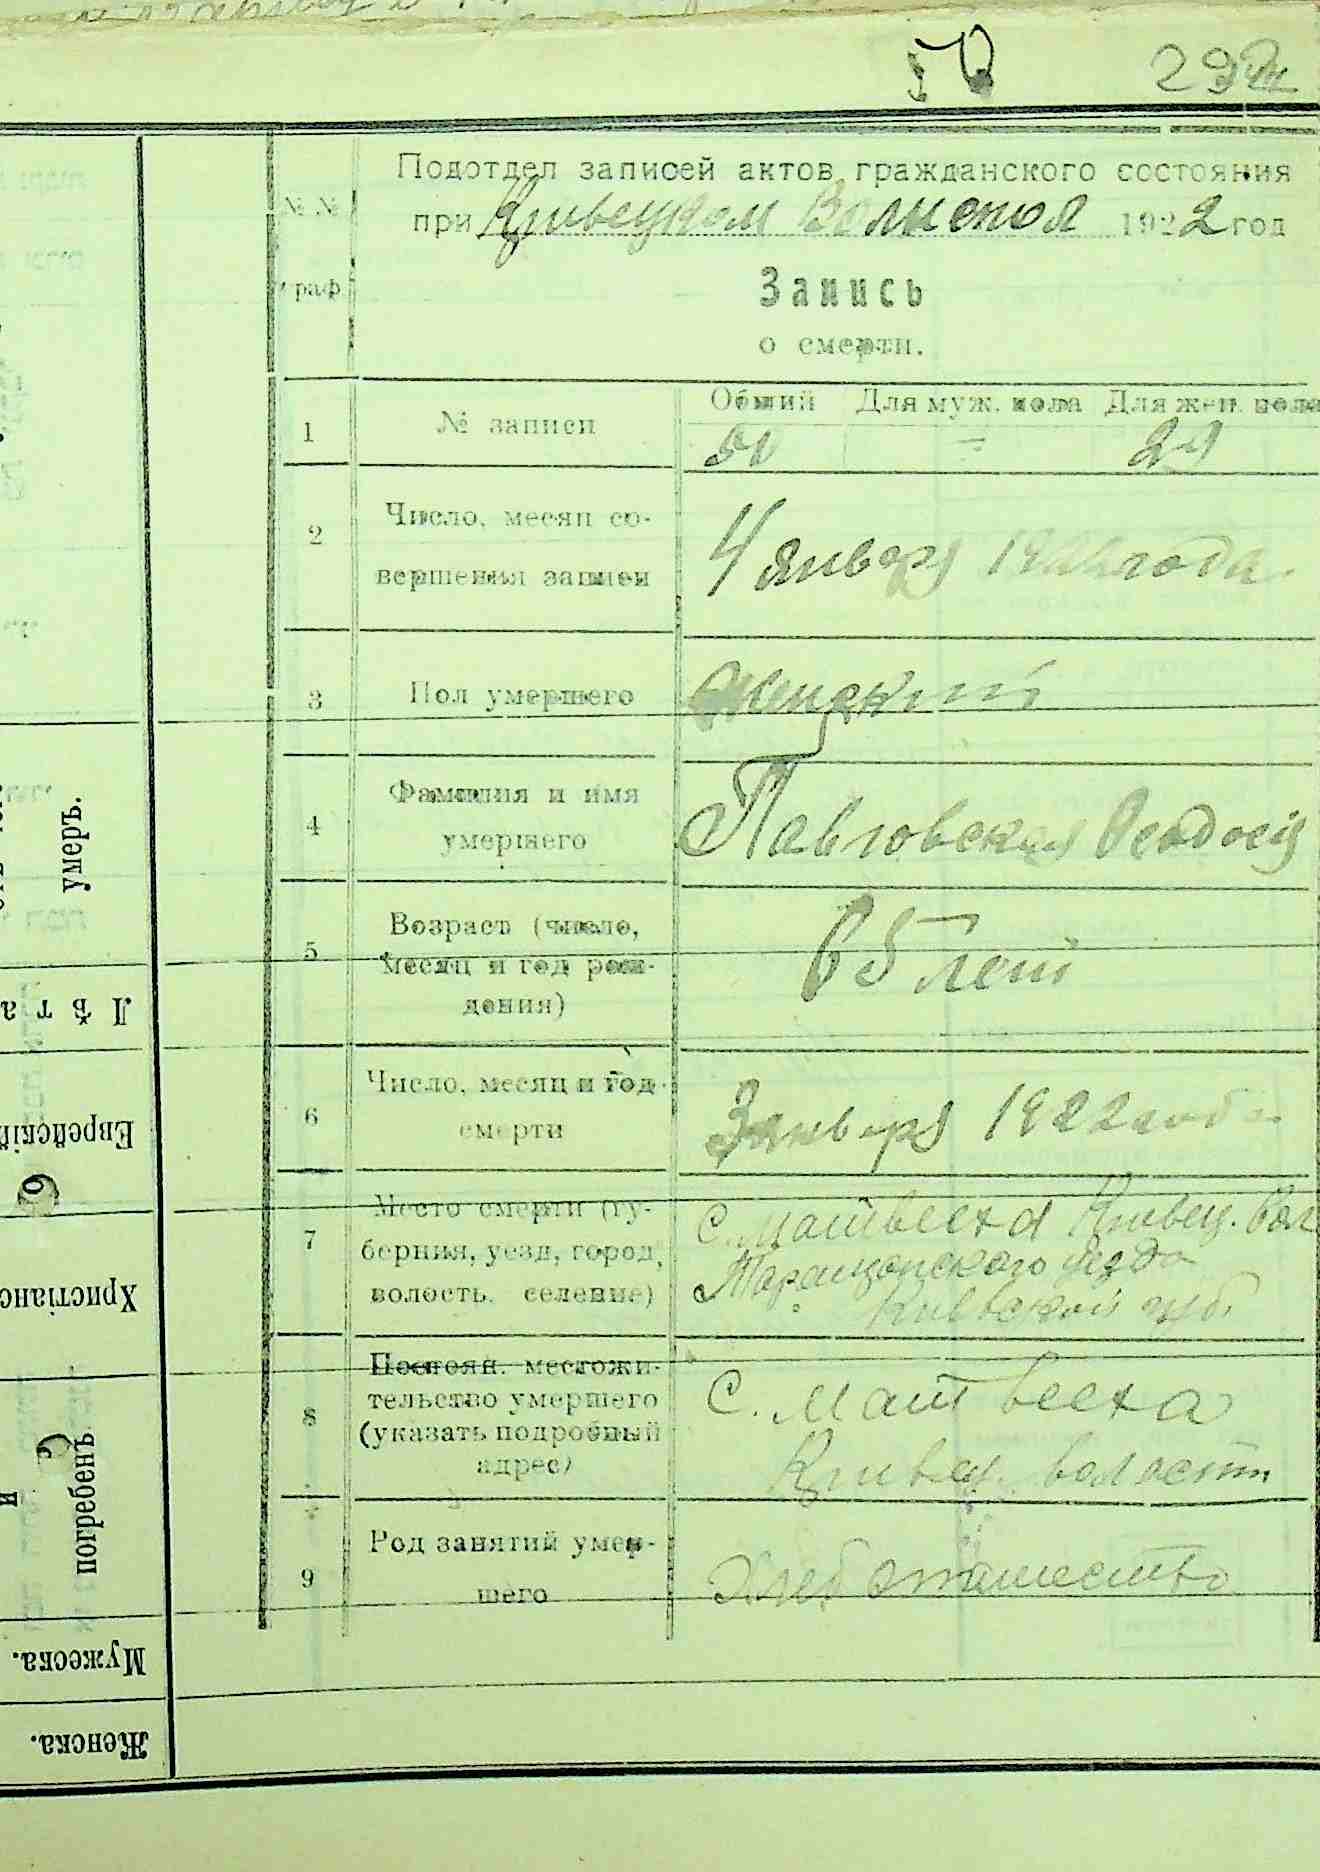 50 29
Подотдел записей актов гражданского состояния
при Кривецком Волисполк 1922 год
№ №
граф
Запись
о смерти.
1 № записи
Общий Для муж. пола Для жен. пола
50 = 29
2 Число, месяц со-
вершения записи
4 января 1922 года
3 Пол умершего
Женский
4 Фамилия и имя
умершего
Павловская Феодосия
5 Возраст (число,
месяц и год рож-
дения)
65 лет
6 Число, месяц и год
смерти
3 января 1922 года
7 Место смерти (гу-
берния, уезд, город,
волость, селение)
С. Матвееха Кривец. Вол
Таращанского уезда
Киевской губ.
8 Постоян. местожи-
тельство умершего
(указать подробный
адрес)
С. Матвееха
Кривец. волости
9 Род занятий умер-
шего
Хлебопашество
умеръ.
Лѣта
Еврейскій
Христіанс
и
погребенъ
Мужеска.
Женска.